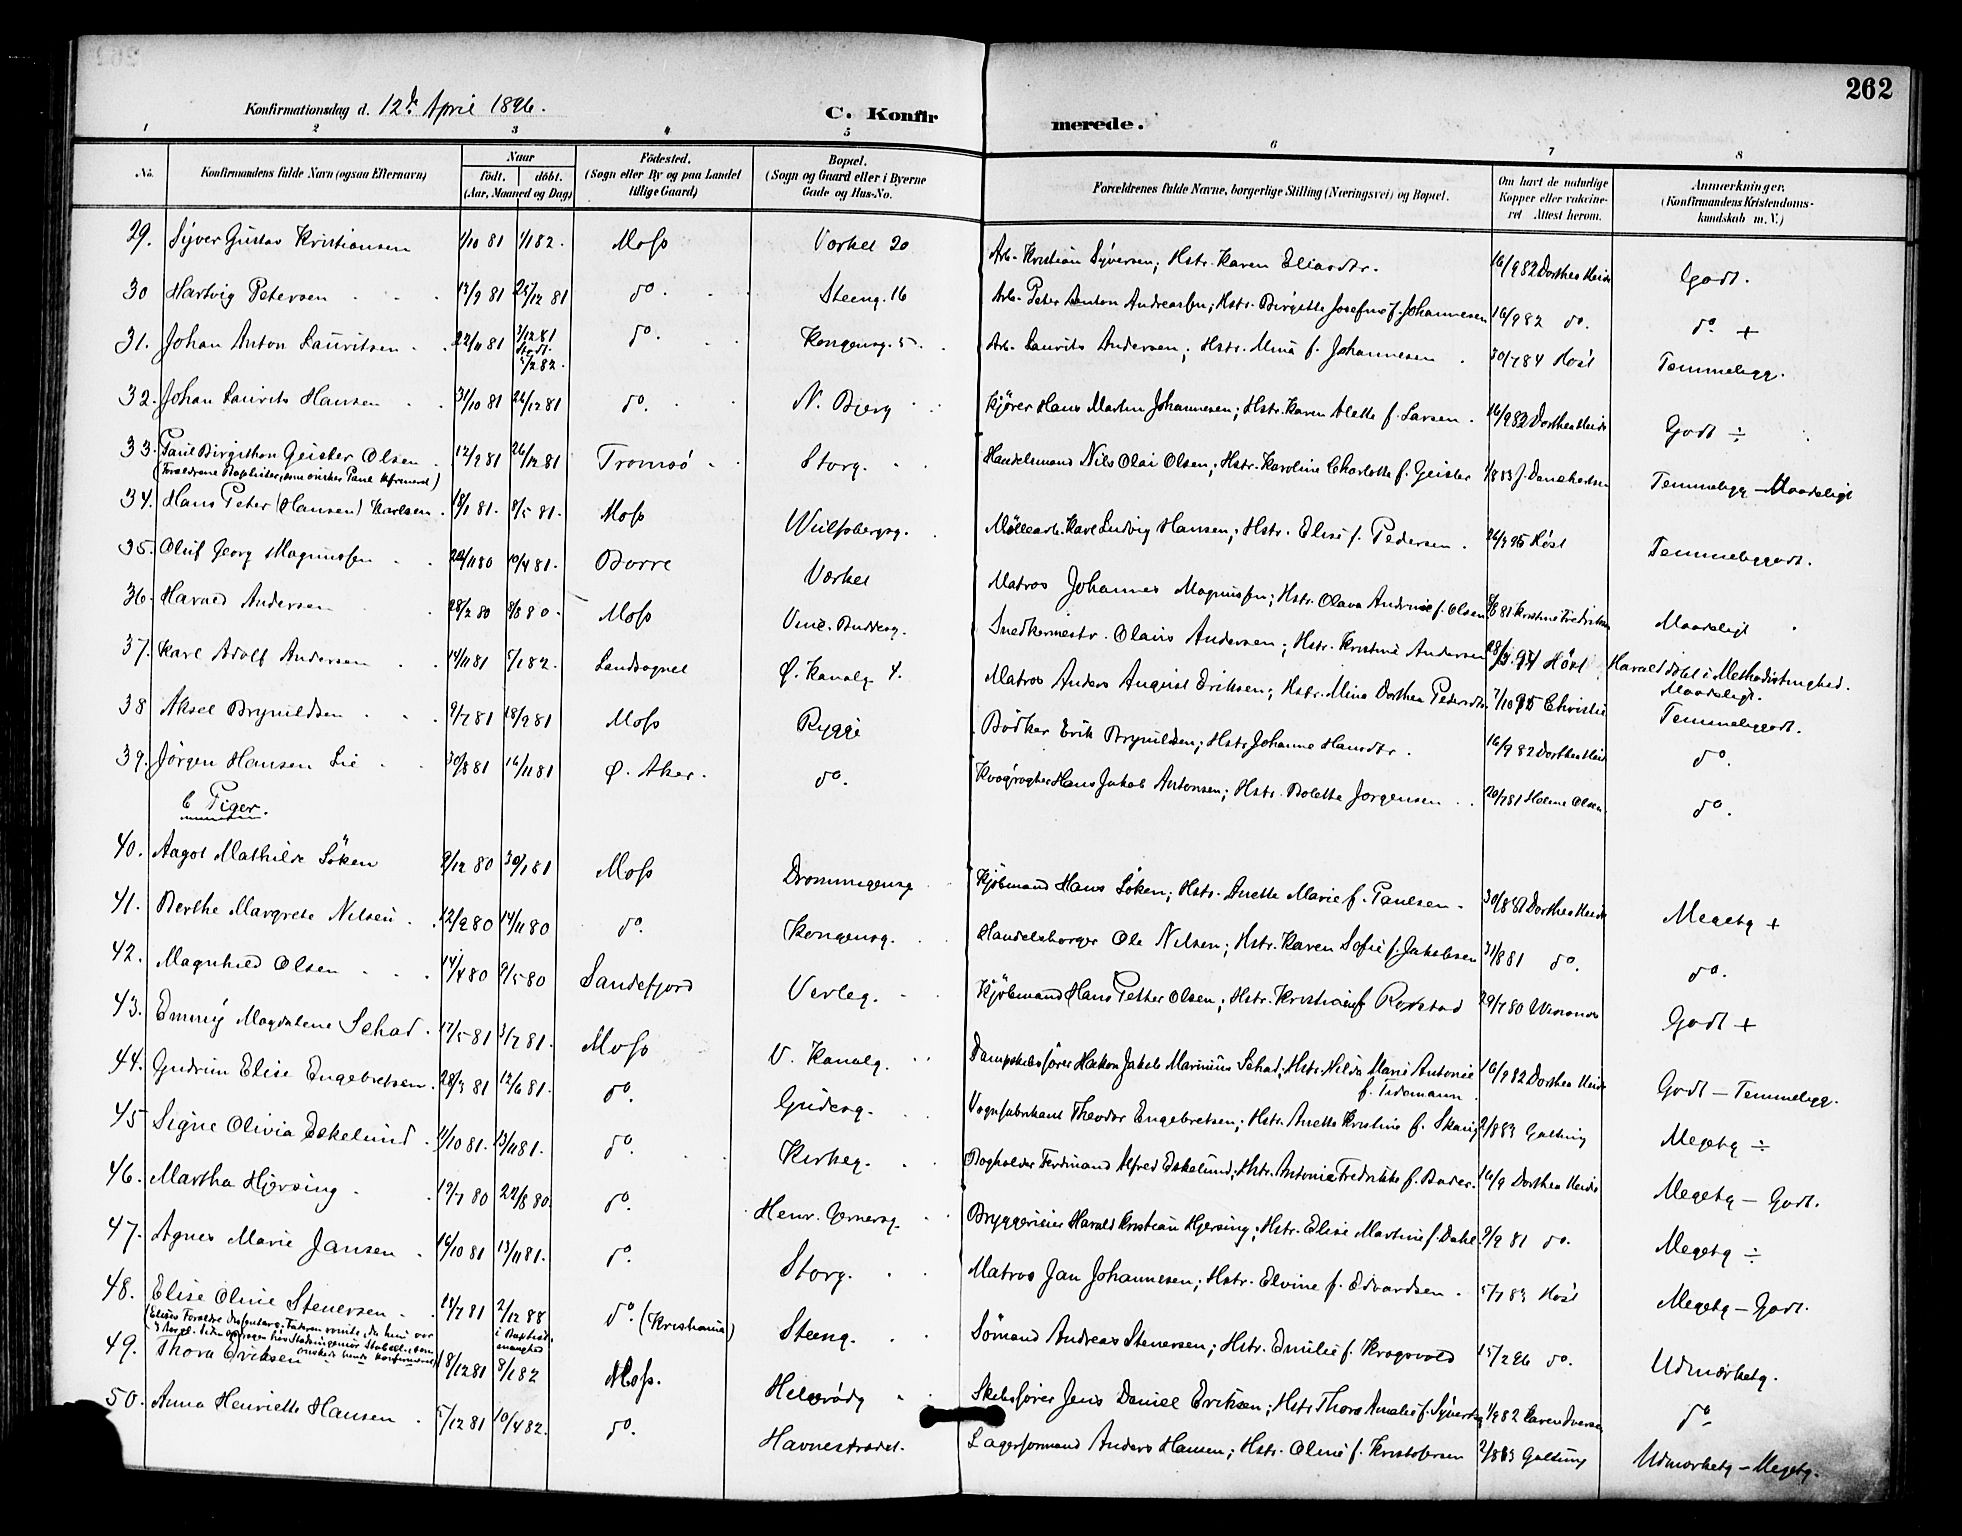 262
Konfirmationsdag d. 12te April 1896.
C. Konfirmerede.
1 2 3 4 5 6 7 8
No. Konfirmandens fulde Navn (ogsaa Efternavn) Naar født. døbt. (Aar, Maaned og Dag) Fødested. (Sogn eller By og paa Landet tillige Gaard) Bopæl. (Sogn og Gaard eller i Byerne Gade og Hus-No. Forældrenes fulde Navne, borgerlige Stilling (Næringsvei) og Bopæl. Om havt de naturlige Kopper eller vaccineret Attest herom. Anmærkninger. (Konfirmandens Kristendomskundskab m. V.)
29. Syver Gustav Kristiansen 1/10 81 1/1 82. Moss Værket 20 Arb. Kristian Syversen; Hstr. Karen Eliasdtr. 16/9 82 Dorthea Heide Godt.
30 Hartvig Petersen 17/9 81 25/12 81 do. Steeng. 16 Arb. Peter Anton Andreassen; Hstr. Birgitte Josefine f. Johannesen 16/9 82 do. do +
31. Johan Anton Lauritsen 22/11 81 do. Kongensg. 5. Arb. Laurits Andersen; Hstr. Mina f. Johannesen 30/7 84 Høst Temmeligg.
32. Johan Laurits Hansen 31/10 81 26/12 81 do. N. Bjerg Kjører Hans Martin Johannesen; Hstr. Karen Alette f. Larsen. 16/9 82 Dorthea Heide Godt ÷
33. Paul Birgithon Geisler Olsen 12/9 81 26/12 81 Tromsø Storg. Handelsmand Nils Olai Olsen; Hstr. Karoline Charlotte f. Geisler 1/8 83 J. Danckertsen Temmeligg — Maadeligt
(Forældrene Baptister, som ønsker Paul konfirmeret)
34. Hans Peter (Hansen) Karlsen. 18/1 81. 8/5 81. Moss Wulfsbergsg. Møllearb. Karl Ludvig Hansen; Hstr. Elise f. Pedersen. 26/9 95 Høst Temmeliggodt.
35. Oluf Georg Magnussen 22/11 80 10/4 81. Borre Værket Matros Johannes Magnussen; Hstr. Olava Andrine f. Olsen Maadeligt
36. Harald Andersen 28/2 80 Moss Vinc. Buddesg. Snedkermestr. Olaus Andersen; Hstr. Kristine Andersen Høst Harald døbt i Methodistmenighed. Maadeligt.
37. Karl Adolf Andersen 14/11 81 7/1 82. Landsognet Ø. Kanalg 4. Matros Anders August Eriksen; Hstr. Mina Dorthea Pedersdtr. 7/10 95 Christie Temmeliggodt.
38 Aksel Brynildsen 9/7 81 18/9 81 Moss Rygge Bødker Erik Brynildsen; Hstr. Johanne Hansdtr. 16/9 82 Dorthea Heide do.
39. Jørgen Hansen Lie 30/8 81 16/11 81 Ø. Aker. do. Hans Jakob Antonsen; Hstr. Bolette Jørgensen 20/7 81 Olsen do.
b Piger.
40. Aagot Mathilde Søken 9/12 80 30/1 81 Moss Dronningensg Kjøbmand Hans Søken; Hstr. Anette Marie f. Paulsen. 30/8 81 Dorthea Heide Megetg +
41. Berthe Margrete Nilsen 12/9 80 14/11 80 do. Kongensg. Handelsborger Ole Nilsen; Hstr. Karen Sofie f. Jakobsen 31/8 81 do. do.
42. Magnhild Olsen 14/4 80 9/5 80 Sandefjord Verleg. Kjøbmand Hans Petter Olsen; Hstr. Kristiane f. 29/7 80 Godt +
43. Emmy Magdalene Schad. 17/5 81 3/7 81. Moss V. Kanalg. Dampskibsfører Hakon Jakob Marinius Schad; Hstr. Hilda Marie Antonie f. Tidemann. 16/9 82 Dorthea Heide Godt — Temmeligg.
44. Gudrun Elise Engebretsen. 28/3 81 12/6 81. do. Gudesg. Vognfabrikant Theodor Engebretsen; Hstr. Anette Kristine f. Skaug 2/8 83 Galtung Megetg ÷
45 Signe Olivia Eskelund. 11/10 81. 13/11 81. do. Kirkeg. Bogholder Ferdinand Alfred Eskelund; Hstr. Antonie Fredrikke f. Bader. 16/9 Dorthea Heide Megetg — Godt.
46. Martha Hjersing. 19/7 80 22/8 80. do. Henr. Gernersg. Bryggerieier Harald Kristian Hjersing; Hstr. Elise Martine f. Dahl. 9/9 81 do. Megetg ÷
47. Agnes Marie Jansen 16/10 81 13/11 81. do. Storg. Matros Jan Johannesen; Hstr. Elvine f. Edvardsen. 5/7 83 Høst Megetg — Godt.
48. Elise Oline Stenersen 18/7 81 2/12 88 i Baptistmenighed do. (Kristiania) Steeng. Sømand Andreas Stenersen; Hstr. Emilie f. Krogsvold 15/2 96 do. Udmærketg.
49. Thora Eriksen 8/12 81 8/1 82 Moss. Skibsfører Jens Daniel Eriksen; Hstr. Thora Amalie f. Syvertsen 1/9 82 Karen Iversen do.
50. Anna Henriette Hansen 5/12 81 10/4 82. do. Havnestrædet. Lagerformand Anders Hansen; Hstr. Oline f. Kristofersen 2/8 83 Galtung Udmærketg — Megetg.